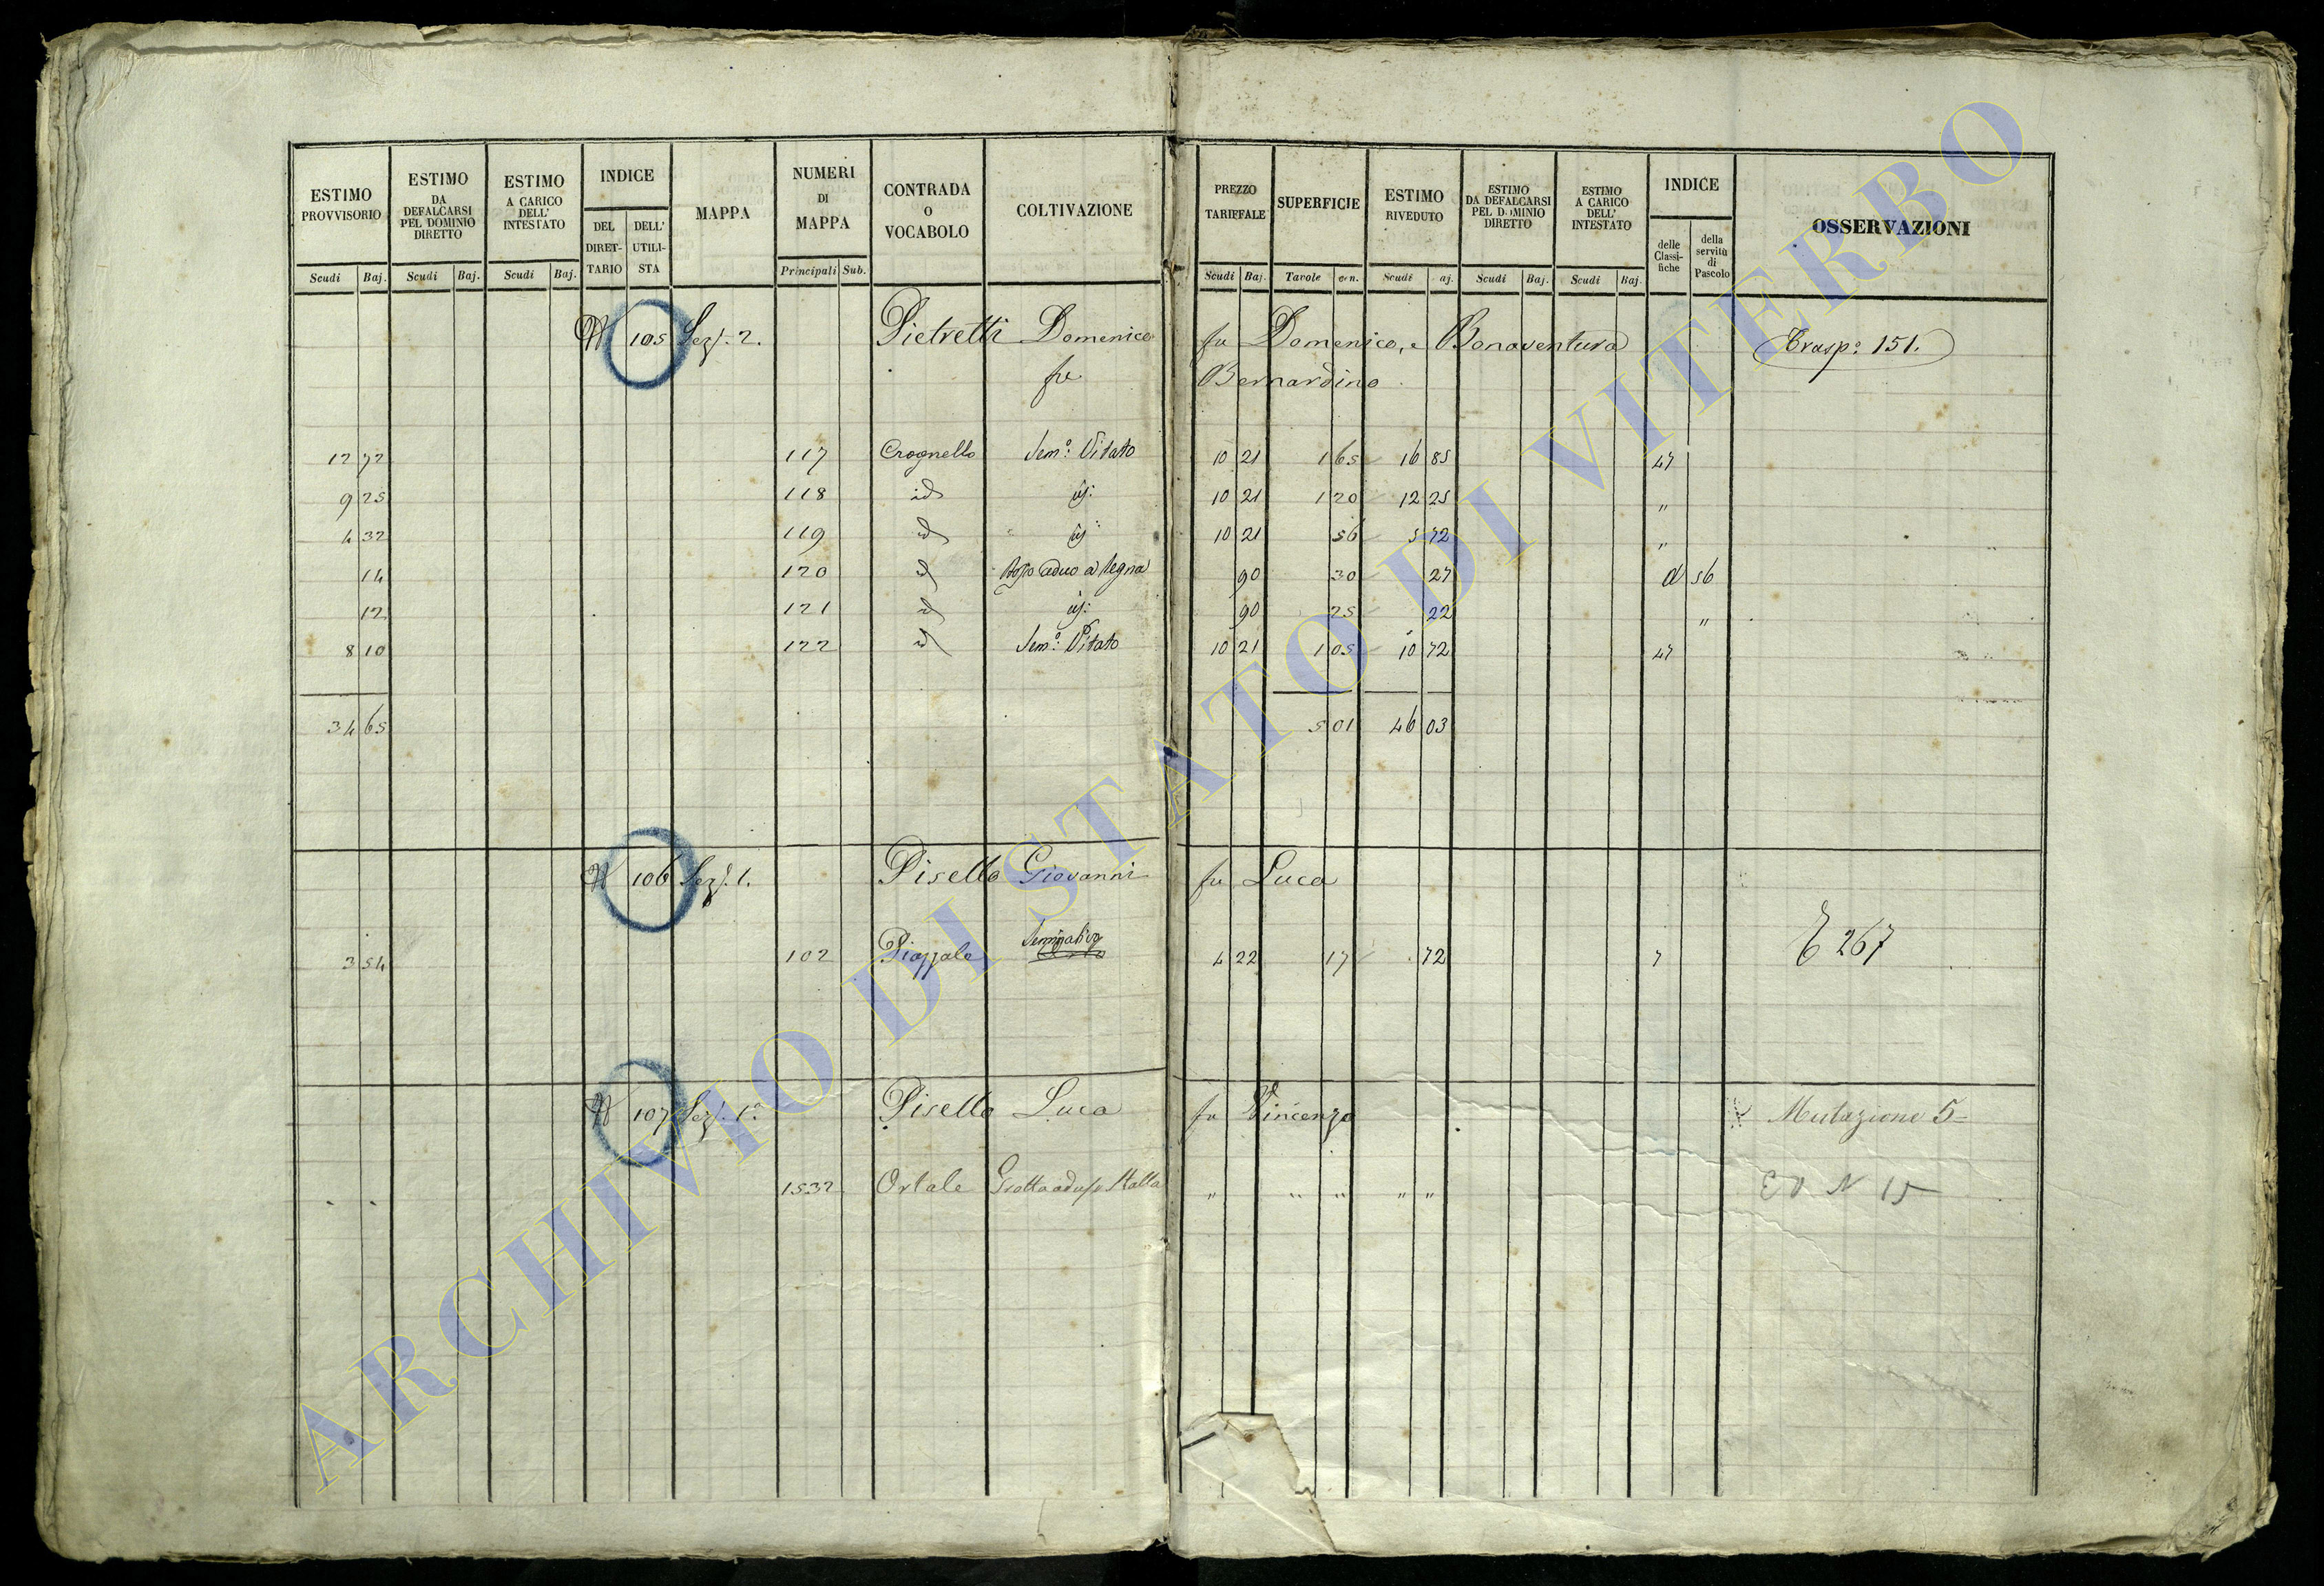 ESTIMO PROVVISORIO ESTIMO DA DEFALCARSI PEL DOMINIO DIRETTO ESTIMO A CARICO DELL' INTESTATO INDICE DEL DIRETTARIO DELL' UTILISTA MAPPA NUMERI DI MAPPA CONTRADA O VOCABOLO COLTIVAZIONE PREZZO TARIFFALE SUPERFICIE ESTIMO RIVEDUTO ESTIMO DA DEFALCARSI PEL DOMINIO DIRETTO ESTIMO A CARICO DELL' INTESTATO INDICE delle Classifiche della servitù di Pascolo OSSERVAZIONI
Scudi Baj. Scudi Baj. Scudi Baj. Principali Sub. Scudi Baj. Tavole en. Scudi aj. Scudi Baj. Scudi Baj.
105 Sez: 2. Pietretti Domenico fu Domenico, e Bonaventura Trasp: 151.
fu Bernardino
12 72 117 Crognello Sem: Vitato 10 21 1 65 16 85 47
9 25 118 id id: 10 21 1 20 12 25 "
4 32 119 id id: 10 21 56 5 72 "
14 120 id Bosco ceduo a legna 90 30 27 d 56
12 121 id id: 90 25 22 "
8 10 122 id Sem: Vitato 10 21 1 05 10 72 47
34 65 5 01 46 03
106 Sez: 1. Pisello Giovanni fu Luca
3 54 102 Piazzale Seminativo 4 22 17 72 7 T 267
107 Sez: 1a Pisello Luca fu Vincenzo Mutazione 5=
1532 Ortale Grotta ad uso Stalla " " " " " N 15
ARCHIVIO DI STATO DI VITERBO